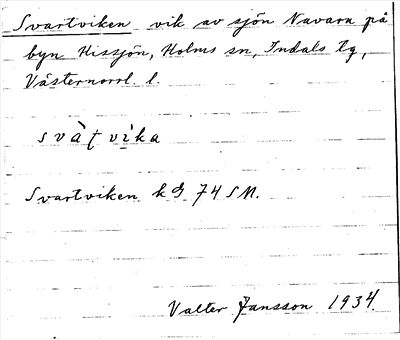 Svartviken vik av sjön Navarn på
byn Hissjön, Holms sn, Indals tg,
Västernorrl. l.
svàʈvìka
Svartviken kG 74 SM.
Valter Jansson 1934.